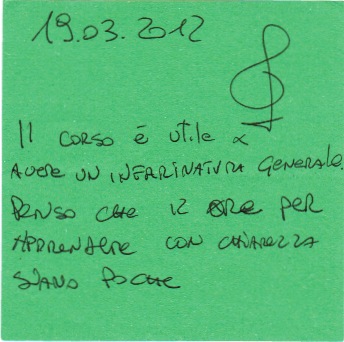 19.03.2012
Il corso è utile x
avere un infarinatura generale.
Penso che 12 ore per
apprendere con chiarezza
siano poche